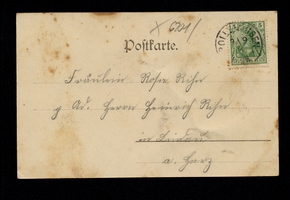 6721
Postkarte.
Fräulein Rosa Rehn
p Ad. Herrn Heinrich Rehn
in Lindau
a. Harz